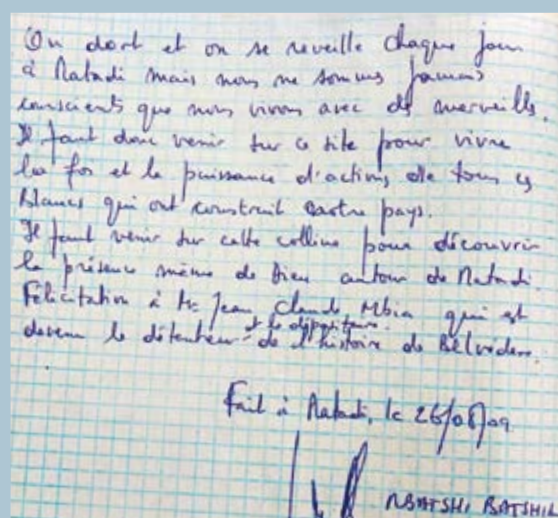 On dort et on se reveille chaque jour
à Matadi mais nous ne sommes jamais
conscients que nous vivons avec des merveilles.
Il faut donc venir sur ce site pour vivre
la foi et la puissance d'actions de tous ces
blancs qui ont construit notre pays.
Il faut venir sur cette colline pour découvrir
la présence même de Dieu autour de Matadi.
Félicitation à Mr Jean Claude Mbia qui est
devenu le détenteur et le dépositaire de l'histoire de Belvédère.
Fait à Matadi, le 26/08/09
BATSHI